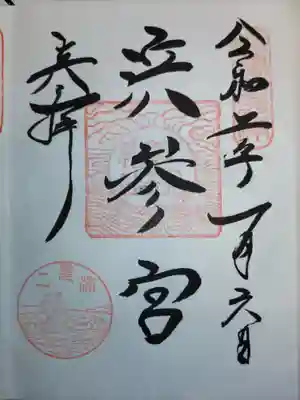 令和二年一月六日
浜参宮
奉拝
二見浦